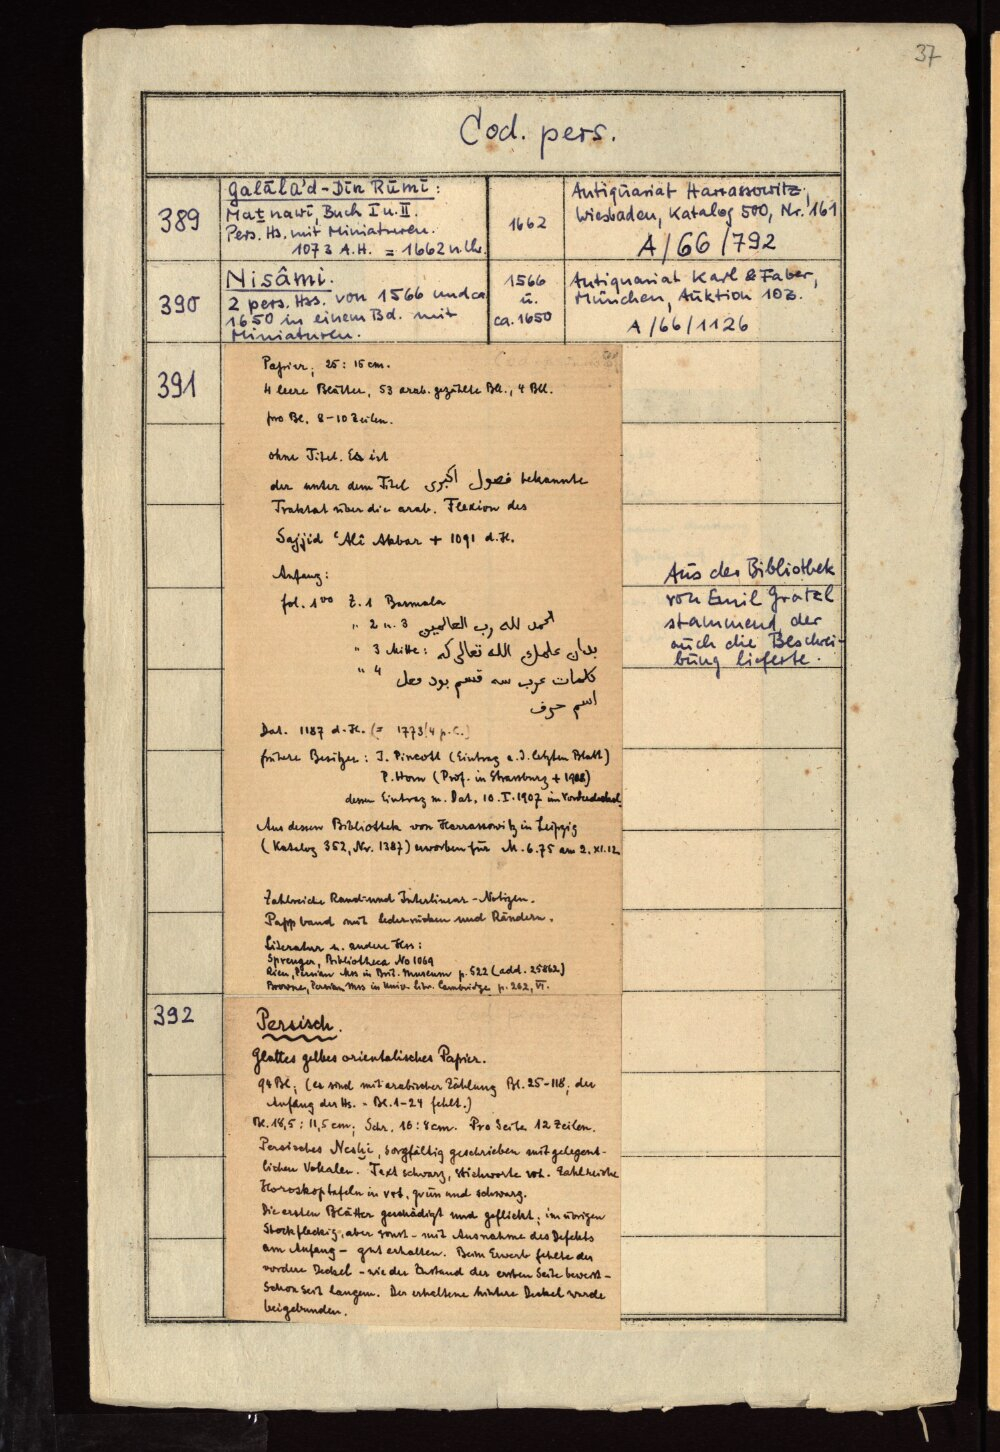 37
Cod. pers.
389
Galāla'd-Dīn Rūmī:
Maṯnawī, Buch I u. II.
Pers. Hs. mit Miniaturen.
1073 A.H. = 1662 n. Chr.
1662
Antiquariat Harrassowitz,
Wiesbaden, Katalog 500, Nr. 161
A/66/792
390
Nisâmi.
2 pers. Hss. von 1566 und ca
1650 in einem Bd. mit
Miniaturen.
1566
u.
ca. 1650
Antiquariat Karl & Faber,
München, Auktion 103.
A/66/1126
391
Papier, 25 : 15 cm.
4 leere Blätter, 53 arab. gezählte Bll., 4 Bll.
pro Bl. 8-10 Zeilen.
ohne Titel. Es ist
der unter dem Titel فصول اكبرى bekannte
Traktat über die arab. Flexion des
Sajjid ʿAlî Akbar + 1091 d. H.
Anfang:
fol. 1ᵛᵒ Z. 1 Basmala
" 2 u. 3 الحمد لله رب العالمين
" 3 Mitte: بدان علمك الله تعالى كه
" 4 كلمات عرب سه قسم بود فعل
اسم حرف
Dat. 1187 d. H. (= 1773/4 p. C.)
frühere Besitzer: J. Pincott (Eintrag a. d. letzten Blatt)
P. Horn (Prof. in Strassburg + 1908)
dessen Eintrag m. Dat. 10. I. 1907 im Vorderdeckel.
Aus dessen Bibliothek von Harrassowitz in Leipzig
(Katalog 352, Nr. 1387) erworben für M. 6.75 am 2. XI. 12
Zahlreiche Rand- und Interlinear-Notizen.
Pappband mit Lederrücken und Rändern.
Literatur u. andere Hss:
Sprenger, Bibliotheca No 1069
Rieu, Persian Mss in Brit. Museum p. 522 (add. 25862)
Browne, Persian Mss in Univ. Libr. Cambridge p. 262, VI.
Aus der Bibliothek
von Emil Gratzl
stammend, der
auch die Beschrei-
bung lieferte.
392
Persisch.
Glattes gelbes orientalisches Papier.
94 Bl; (es sind mit arabischer Zählung Bl. 25-118; der
Anfang der Hs. - Bl. 1-24 fehlt.)
Bl. 18,5 : 11,5 cm; Schr. 16 : 8 cm. Pro Seite 12 Zeilen.
Persisches Neshi, sorgfältig geschrieben mit gelegent-
lichen Vokalen. Text schwarz, Stichworte rot. Zahlreiche
Horoskoptafeln in rot, grün und schwarz.
Die ersten Blätter geschädigt und geflickt; im übrigen
Stockfleckig, aber sonst - mit Ausnahme des Defekts
am Anfang - gut erhalten. Beim Erwerb fehlte der
vordere Deckel - wie der Zustand der ersten Seite beweist -
schon seit langem. Der erhaltene hintere Deckel wurde
beigebunden.